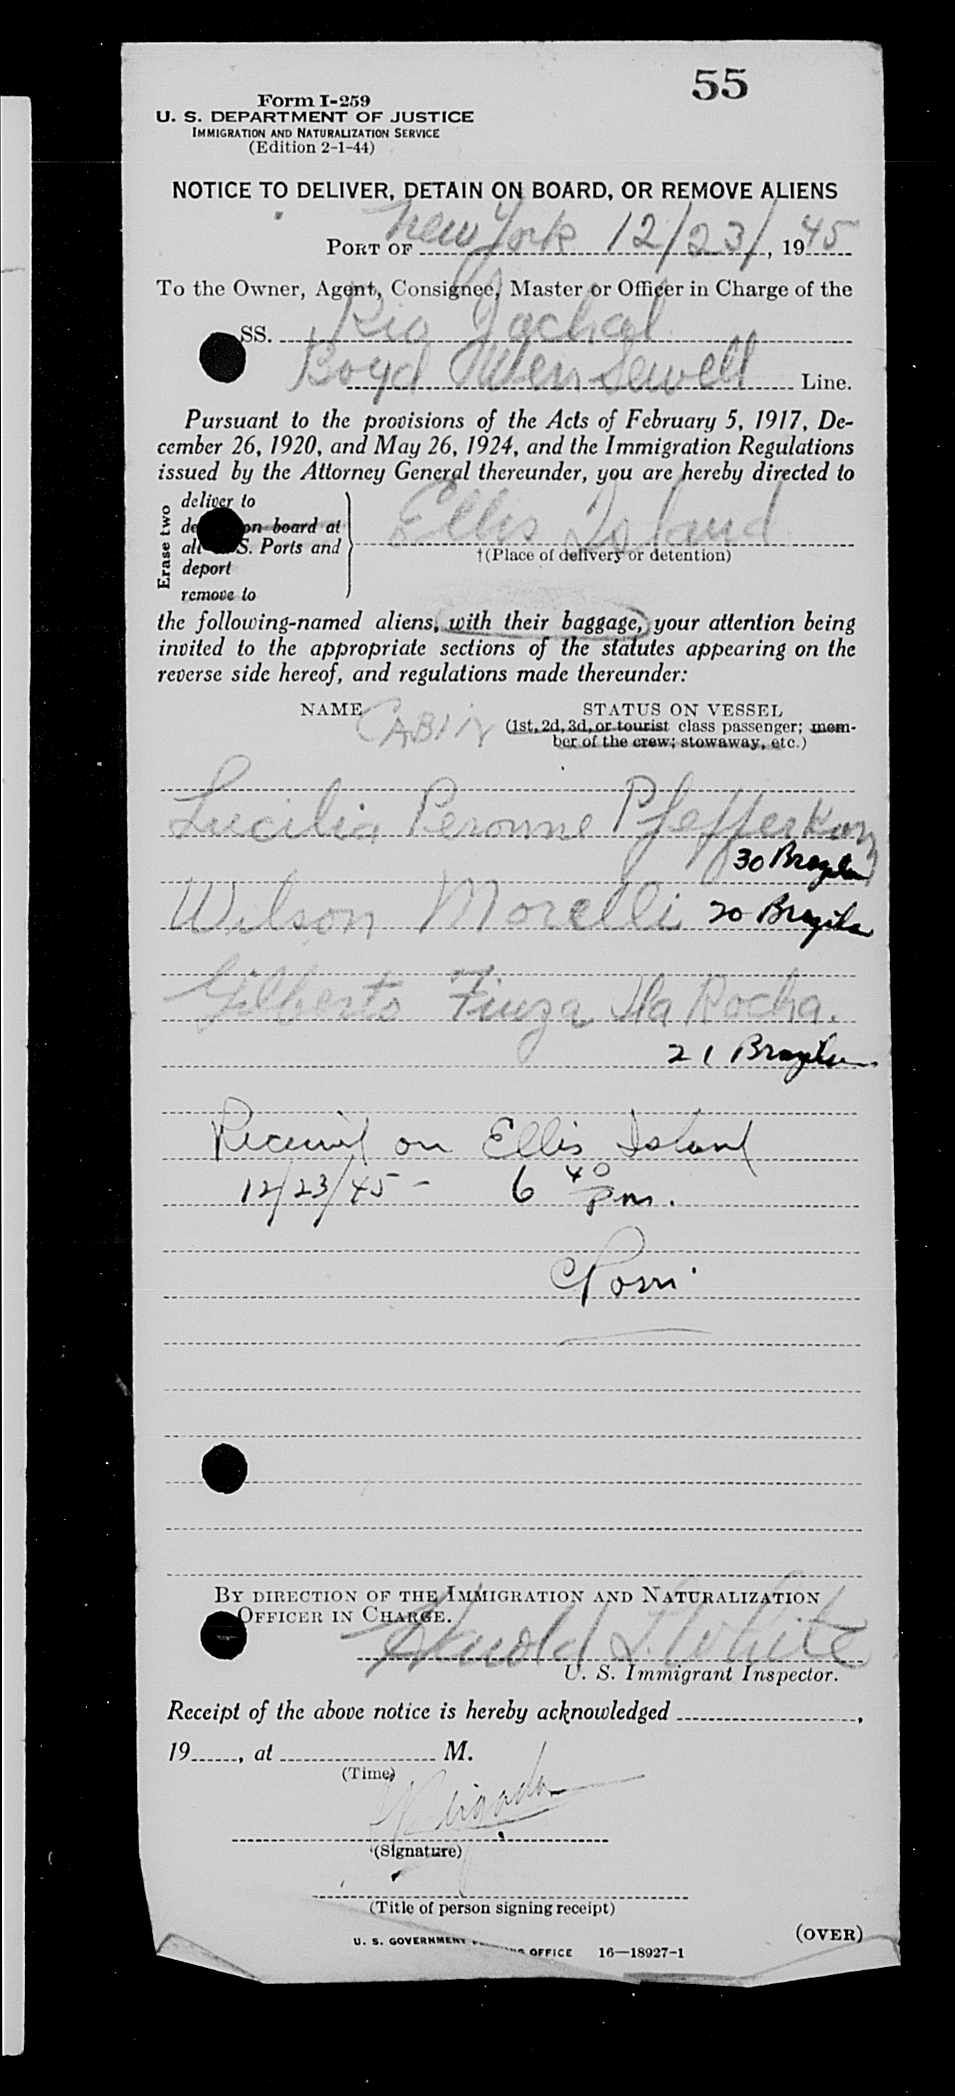 55
Form I-259
U. S. DEPARTMENT OF JUSTICE
IMMIGRATION AND NATURALIZATION SERVICE
(Edition 2-1-44)
NOTICE TO DELIVER, DETAIN ON BOARD, OR REMOVE ALIENS
PORT OF New York 12/23/, 1945
To the Owner, Agent, Consignee, Master or Officer in Charge of the
SS. Rio Jachal
Boyd Sewell Line.
Pursuant to the provisions of the Acts of February 5, 1917, De-
cember 26, 1920, and May 26, 1924, and the Immigration Regulations
issued by the Attorney General thereunder, you are hereby directed to
Erase two
deliver to
on board at
all S. Ports and
deport
remove to
Ellis Island
†(Place of delivery or detention)
the following-named aliens, with their baggage, your attention being
invited to the appropriate sections of the statutes appearing on the
reverse side hereof, and regulations made thereunder:
NAME CABIN STATUS ON VESSEL
(1st, 2d, 3d, or tourist class passenger; mem-
ber of the crew; stowaway, etc.)
Lucilia Peronne
30
Wilson Morelli 20
Gilberto Fiuza Da Rocha.
21
Received on Ellis Island
12/23/45 - 6 40 pm.
BY DIRECTION OF THE IMMIGRATION AND NATURALIZATION
OFFICER IN CHARGE.
Harold L. White
U. S. Immigrant Inspector.
Receipt of the above notice is hereby acknowledged ,
19 , at M.
(Time)
(Signature)
(Title of person signing receipt)
U. S. GOVERNMENT OFFICE 16—18927-1
(OVER)